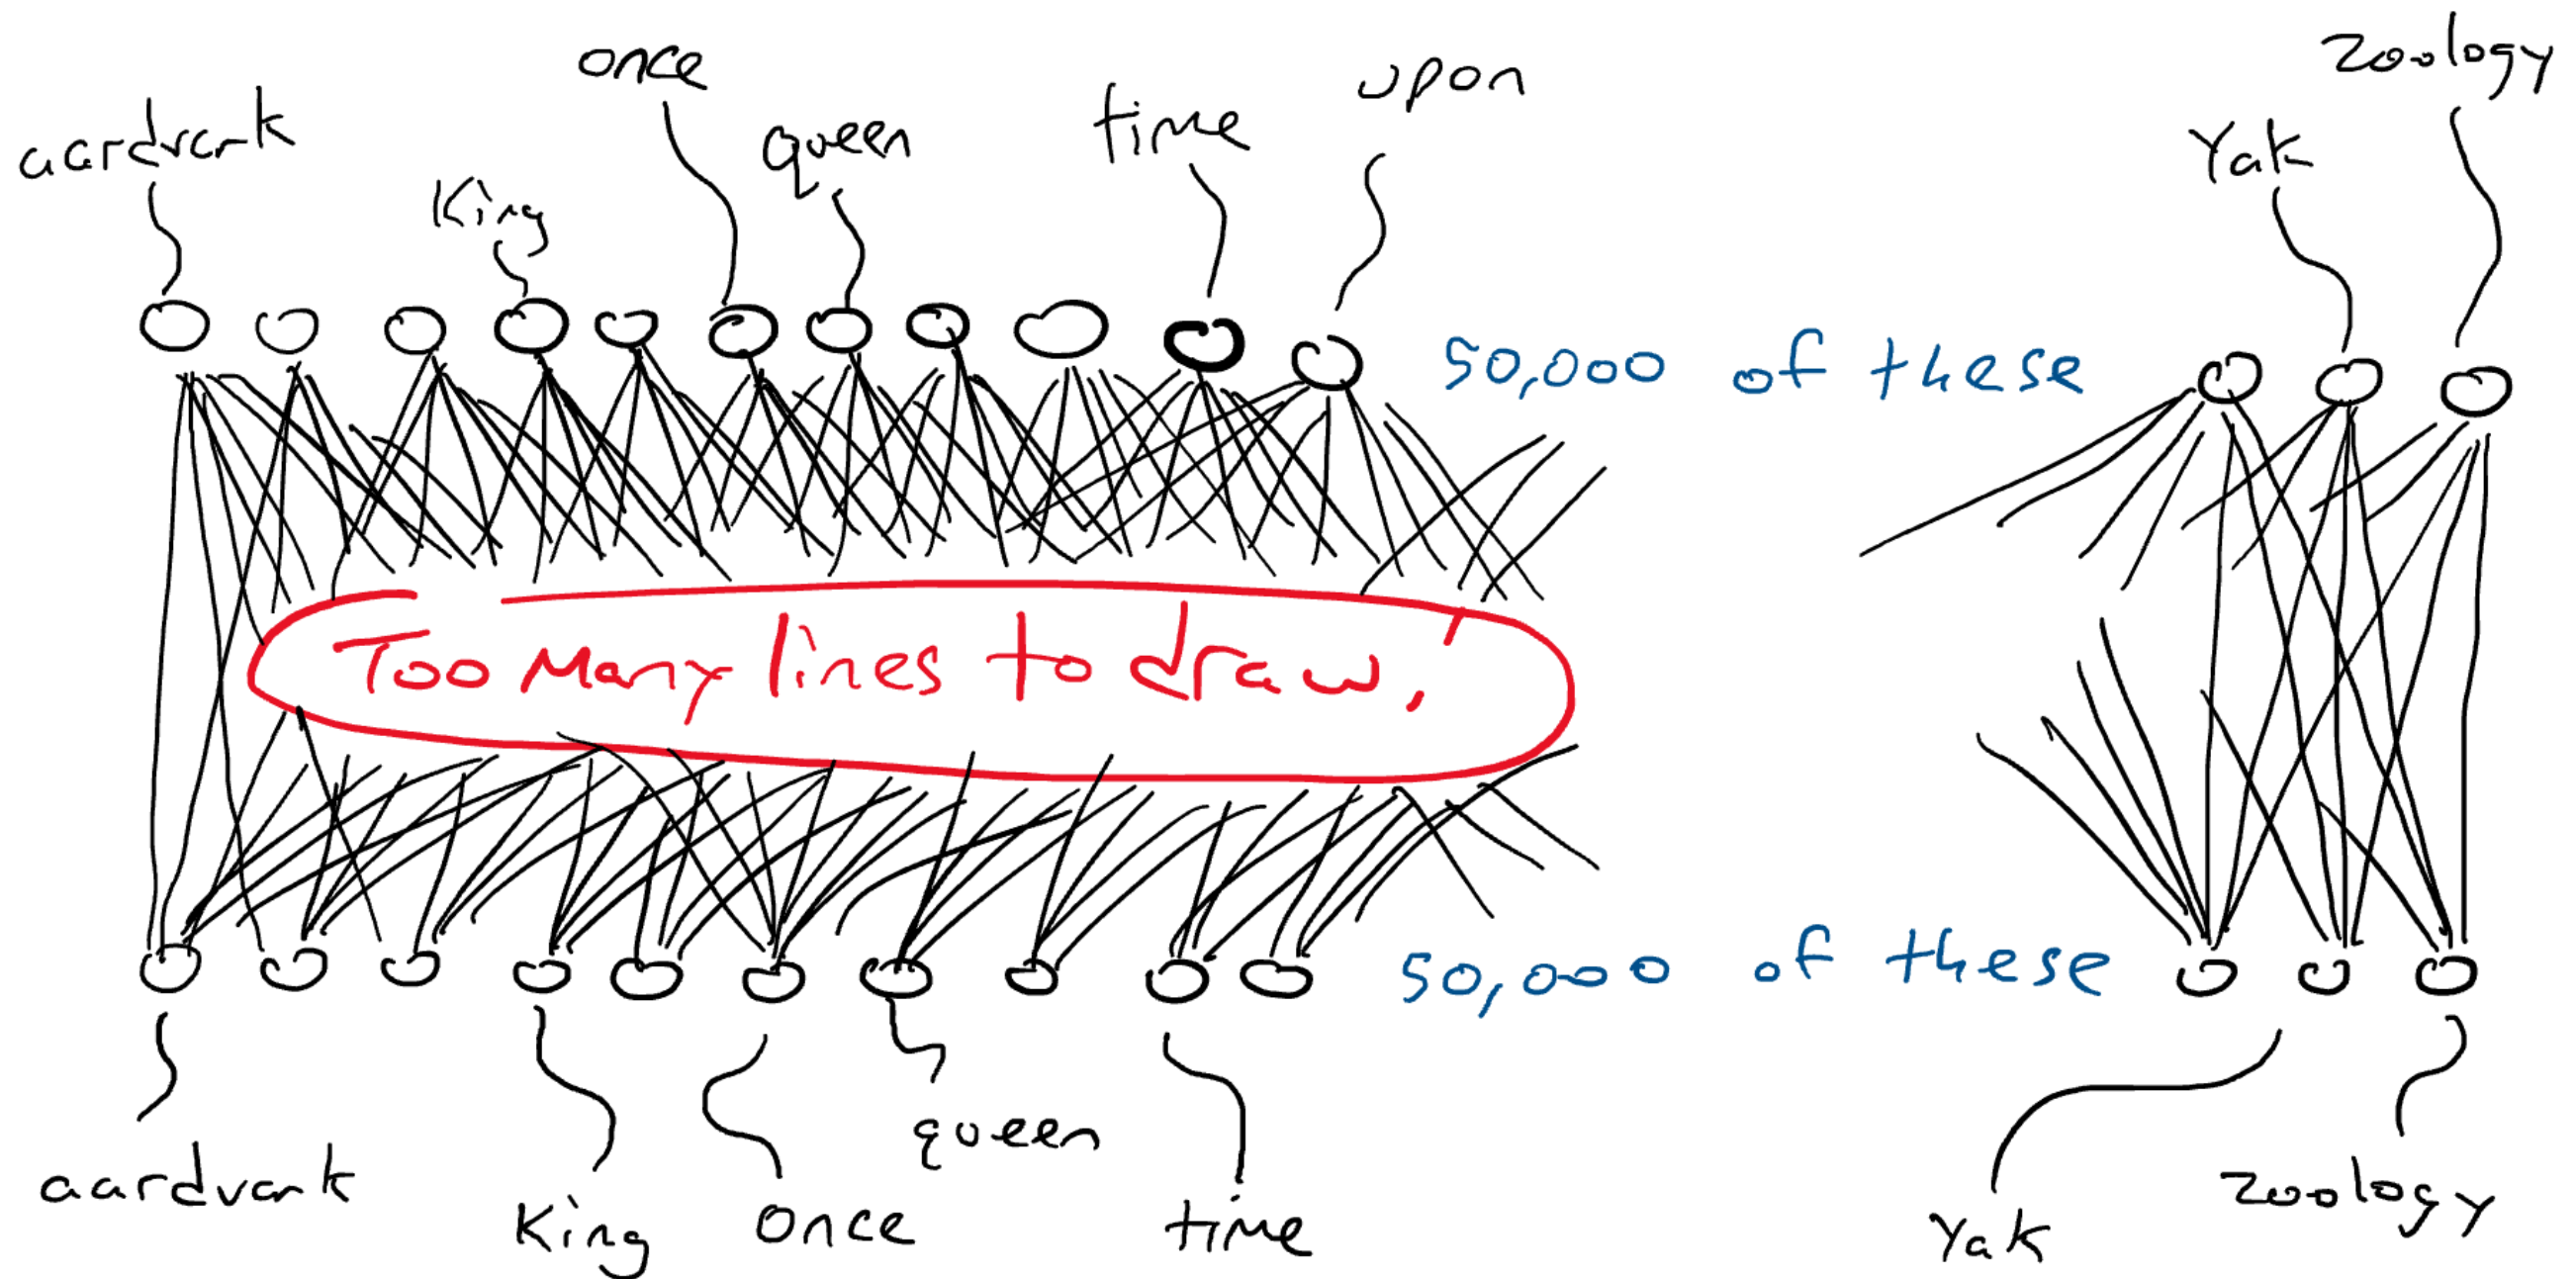 aardvark
King
once
queen
time
upon
Yak
zoology
50,000 of these
Too Many lines to draw!
50,000 of these
aardvark
King
Once
queen
time
Yak
zoology